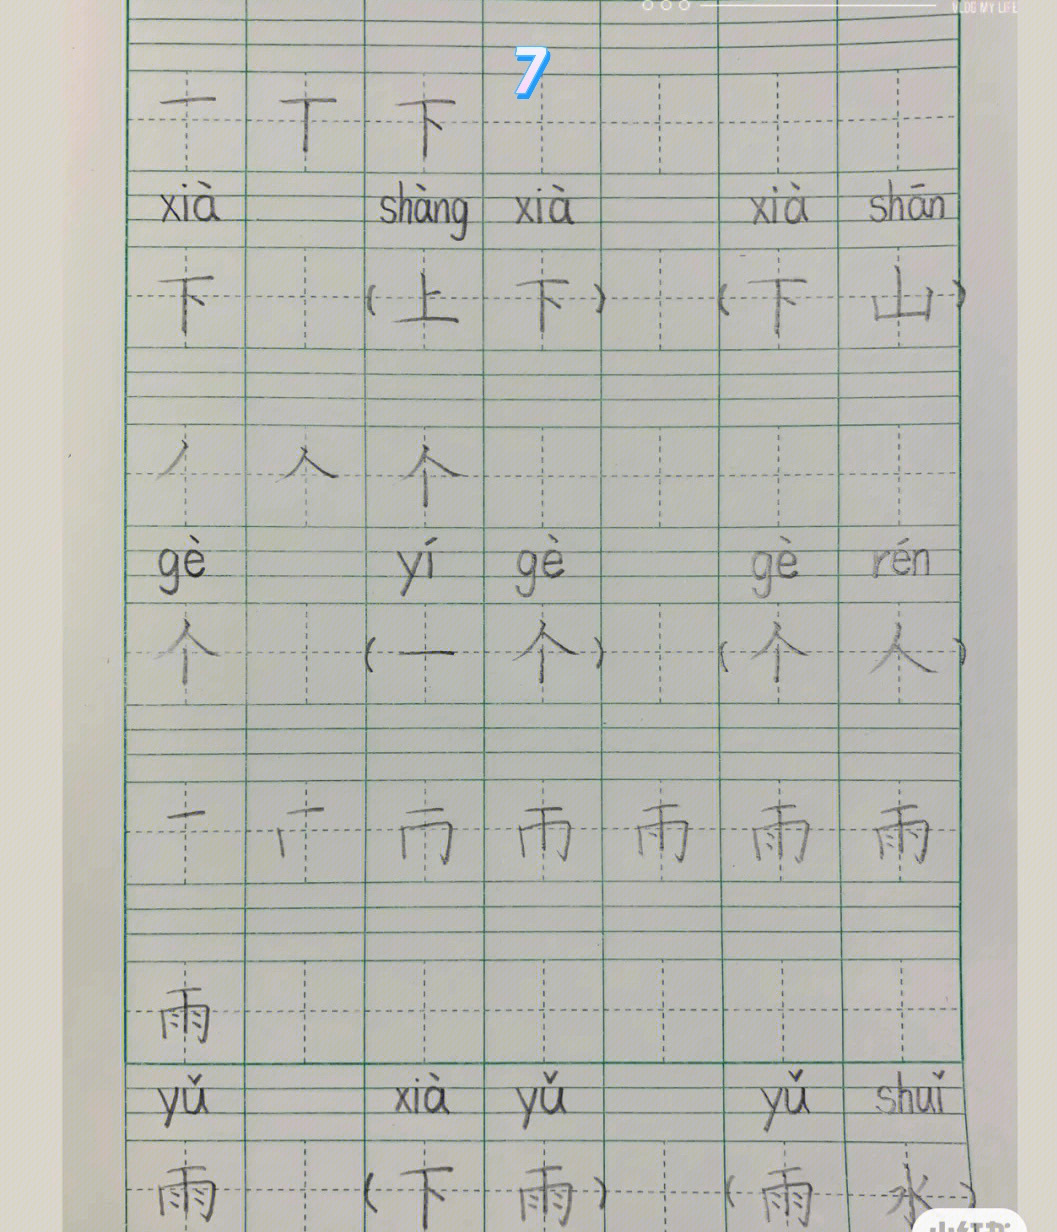 VLOG MY LIFE
7
一 丅 下
xià shàng xià xià shān
下 (上 下) (下 山)
丿 人 个
gè yí gè gè rén
个 (一 个) (个 人)
一 雨
雨
yǔ xià yǔ yǔ shuǐ
雨 (下 雨) (雨 水)
小红书